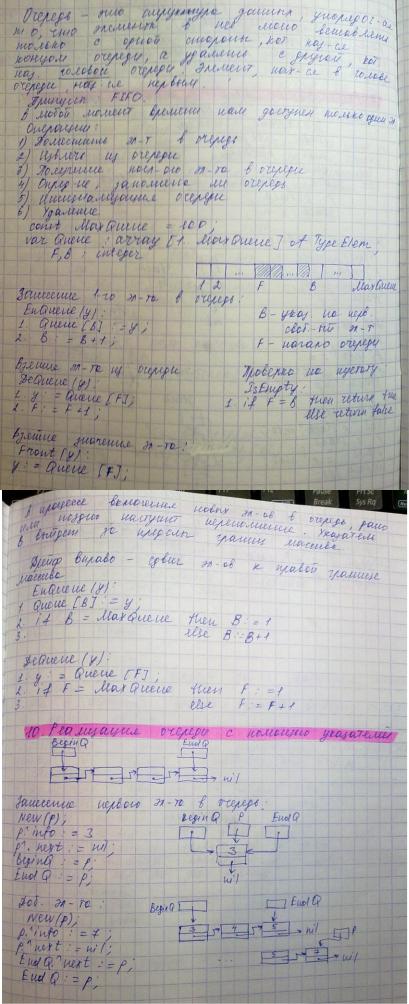 Очередь – это структура данных, упорядоч-ая
то, что элементы в неё можно вставлять
только с одной стороны, кот. наз-ся
концом очереди, а удалять с другой, кот.
наз. головой очереди. Элемент, нах-ся в голове
очереди, наз-ся первым.
Принцип: FIFO.
В любой момент времени нам доступен только один э.
Операции:
1) Поместить эл-т в очередь
2) Извлечь из очереди
3) Получение эл-та в очереди
4) Опред-ие, заполнена ли очередь
5) Инициализация очереди
6) Удаление
const MaxQueue = 100;
var Queue : array [1. MaxQueue] of TypeElem;
F, B : integer
1 2 ... F ... B MaxQueue
Занесение 1-го эл-та в очередь:
EnQueue (y):
1. Queue [B] := y;
2. B := B+1;
B – указ. на перв.
своб-ый эл-т
F – начало очереди
Взятие эл-та из очереди
DeQueue (y):
1. y := Queue [F];
2. F := F+1;
Проверка на пустоту
IsEmpty:
1. if F = B then return true
else return false
Взятие значения эл-та:
Front (y):
y := Queue [F];
В процессе включения новых эл-ов в очередь, рано
или поздно наступит переполнение. Указатель
B выйдет за пределы границ массива
Дрейф вправо – сдвиг эл-ов к правой границе
массива
EnQueue (y):
1 Queue [B] := y;
2. if B = MaxQueue then B := 1
3. else B := B+1
DeQueue (y):
1. y := Queue [F];
2. if F = MaxQueue then F := 1
3. else F := F+1
10. Реализация очереди с помощью указателей
BeginQ EndQ
nil
Занесение первого эл-та в очередь:
New(p);
p^.info := 3
p^.next := nil;
BeginQ := p;
EndQ := p;
BeginQ P EndQ
3
nil
Доб. эл-та:
New(p);
p^.info := 7;
p^.next := nil;
EndQ^.next := p;
EndQ := p;
BeginQ EndQ
3 4 5 nil
... 5 7 P
nil